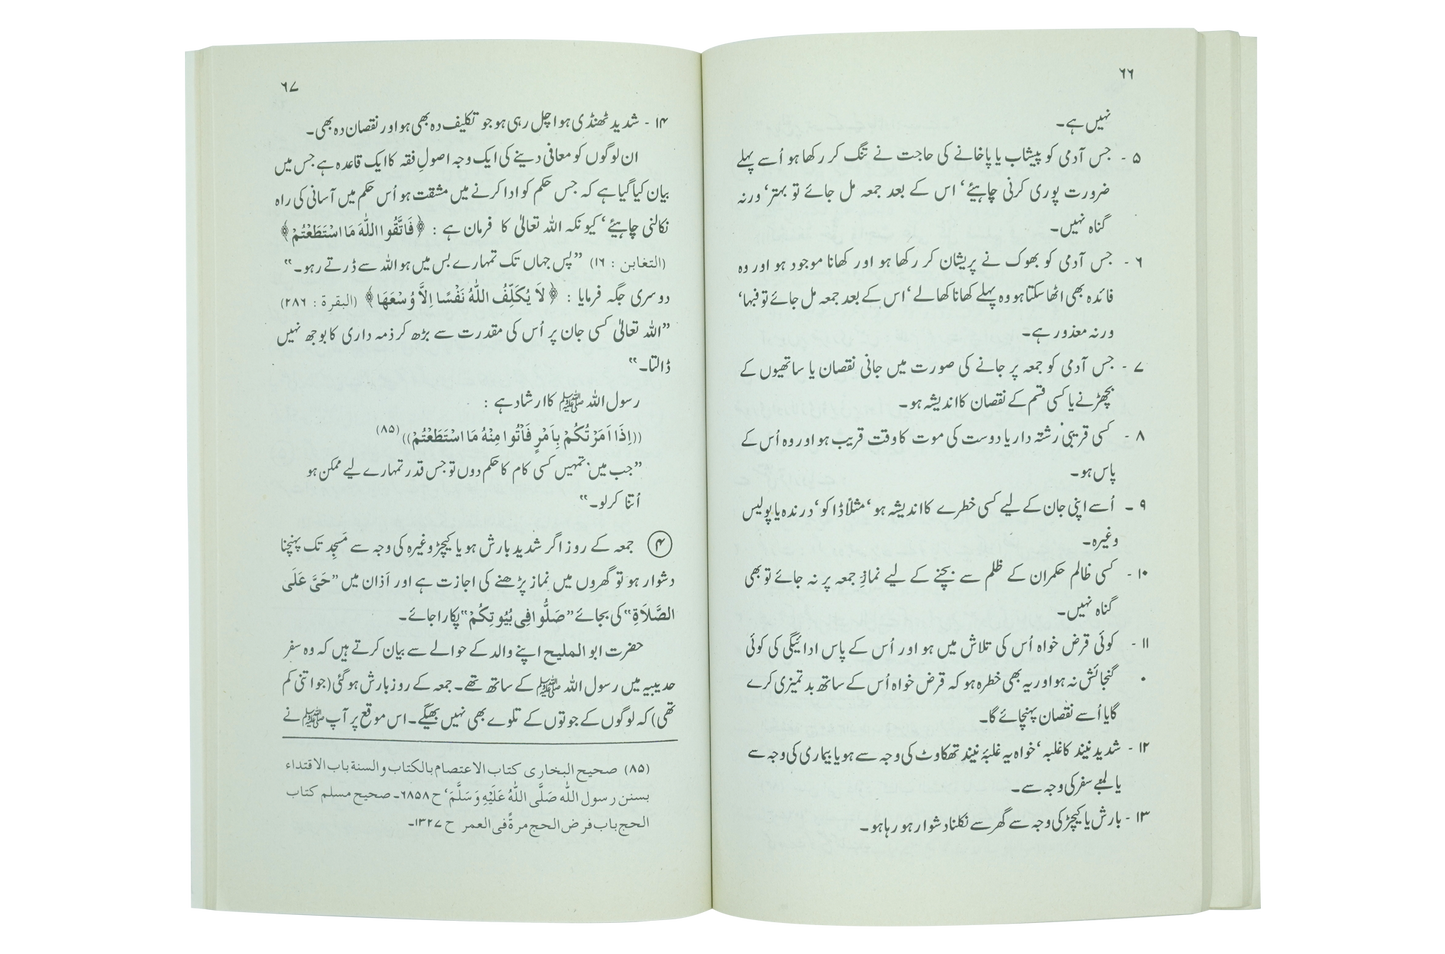 ۶۶
نہیں ہے۔
۵ - جس آدمی کو پیشاب یا پاخانے کی حاجت نے تنگ کر رکھا ہو اُسے پہلے
ضرورت پوری کرنی چاہیئے‘ اس کے بعد جمعہ مل جائے تو بہتر‘ ورنہ
گناہ نہیں۔
۶ - جس آدمی کو بھوک نے پریشان کر رکھا ہو اور کھانا موجود ہو اور وہ
فائدہ بھی اٹھا سکتا ہو وہ پہلے کھانا کھالے‘ اس کے بعد جمعہ مل جائے تو فبہا‘
ورنہ معذور ہے۔
۷ - جس آدمی کو جمعہ پر جانے کی صورت میں جانی نقصان یا ساتھیوں کے
بچھڑنے یا کسی قسم کے نقصان کا اندیشہ ہو۔
۸ - کسی قریبی رشتہ دار یا دوست کی موت کا وقت قریب ہو اور وہ اُس کے
پاس ہو۔
۹ - اُسے اپنی جان کے لیے کسی خطرے کا اندیشہ ہو‘ مثلاً ڈاکو‘ درندہ یا پولیس
وغیرہ۔
۱۰ - کسی ظالم حکمران کے ظلم سے بچنے کے لیے نمازِ جمعہ پر نہ جائے تو بھی
گناہ نہیں۔
۱۱ - کوئی قرض خواہ اُس کی تلاش میں ہو اور اُس کے پاس ادائیگی کی کوئی
گنجائش نہ ہو اور یہ بھی خطرہ ہو کہ قرض خواہ اُس کے ساتھ بدتمیزی کرے
گا یا اُسے نقصان پہنچائے گا۔
۱۲ - شدید نیند کا غلبہ‘ خواہ یہ غلبۂ نیند تھکاوٹ کی وجہ سے ہو یا بیماری کی وجہ سے
یا لمبے سفر کی وجہ سے۔
۱۳ - بارش یا کیچڑ کی وجہ سے گھر سے نکلنا دشوار ہو رہا ہو۔
۶۷
۱۴ - شدید ٹھنڈی ہوا چل رہی ہو جو تکلیف دہ بھی ہو اور نقصان دہ بھی۔
ان لوگوں کو معافی دینے کی ایک وجہ اصولِ فقہ کا ایک قاعدہ ہے جس میں
بیان کیا گیا ہے کہ جس حکم کو ادا کرنے میں مشقت ہو اُس حکم میں آسانی کی راہ
نکالنی چاہیئے‘ کیونکہ اللہ تعالیٰ کا فرمان ہے : ﴿فَاتَّقُوا اللّٰهَ مَا اسْتَطَعْتُمْ﴾
(التغابن : ۱۶) ”پس جہاں تک تمہارے بس میں ہو اللہ سے ڈرتے رہو۔“
دوسری جگہ فرمایا : ﴿لَا يُكَلِّفُ اللّٰهُ نَفْسًا اِلَّا وُسْعَهَا﴾ (البقرة : ۲۸۶)
”اللہ تعالیٰ کسی جان پر اُس کی مقدرت سے بڑھ کر ذمہ داری کا بوجھ نہیں
ڈالتا۔“
رسول اللہ ﷺ کا ارشاد ہے :
((اِذَا اَمَرْتُكُمْ بِاَمْرٍ فَأْتُوا مِنْهُ مَا اسْتَطَعْتُمْ))(۸۵)
”جب میں تمہیں کسی کام کا حکم دوں تو جس قدر تمہارے لیے ممکن ہو
اُتنا کرلو۔“
۴ جمعہ کے روز اگر شدید بارش ہو یا کیچڑ وغیرہ کی وجہ سے مَسجِد تک پہنچنا
دشوار ہو تو گھروں میں نماز پڑھنے کی اجازت ہے اور اَذان میں ”حَيَّ عَلَى
الصَّلَاةِ“ کی بجائے ”صَلُّوا فِي بُيُوتِكُمْ“ پکارا جائے۔
حضرت ابوالملیح اپنے والد کے حوالے سے بیان کرتے ہیں کہ وہ سفر
حدیبیہ میں رسول اللہ ﷺ کے ساتھ تھے۔ جمعہ کے روز بارش ہوگئی (جو اتنی کم
تھی) کہ لوگوں کے جوتوں کے تلوے بھی نہیں بھیگے۔ اس موقع پر آپ ﷺ نے
(۸۵) صحیح البخاری کتاب الاعتصام بالکتاب والسنة باب الاقتداء
بسنن رسول اللّٰه صَلَّى اللّٰهُ عَلَيْهِ وَسَلَّمَ‘ ح ۶۸۵۸۔ صحیح مسلم کتاب
الحج باب فرض الحج مرةً فی العمر ح ۱۳۲۷۔